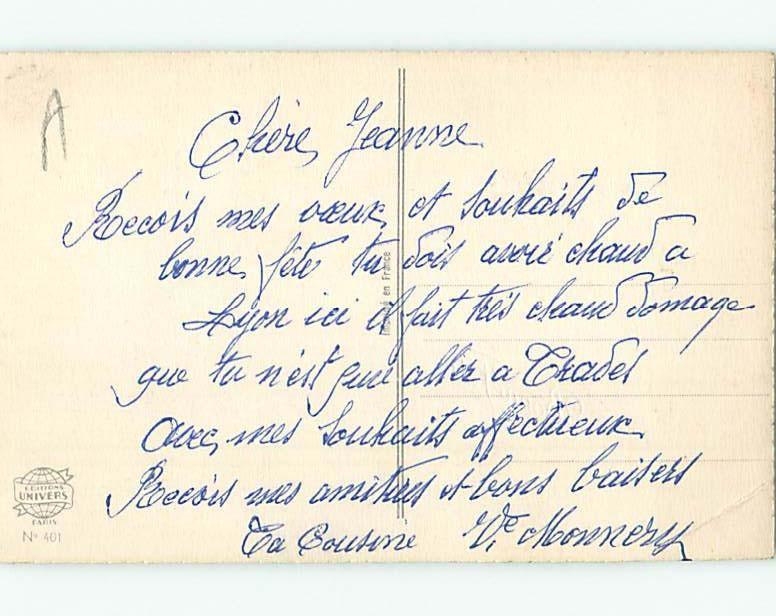 A
Chère Jeanne
Recois mes vœux et souhaits de
bonne fête tu dois avoir chaud a
Lyon ici il fait très chaud domage
que tu n'est pue aller a Trades
avec mes souhaits affectueux
Recois mes amitiés et bons baisers
Ta Cousine Ve Monnery
Imprimé en France
EDITIONS
UNIVERS
PARIS
N° 401